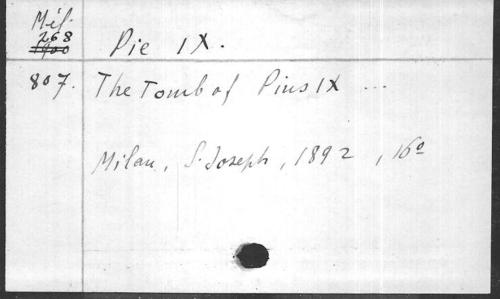 Mél.
268
1900
Pie IX.
807. The Tomb of Pius IX ...
Milan, S. Joseph, 1892, 16º